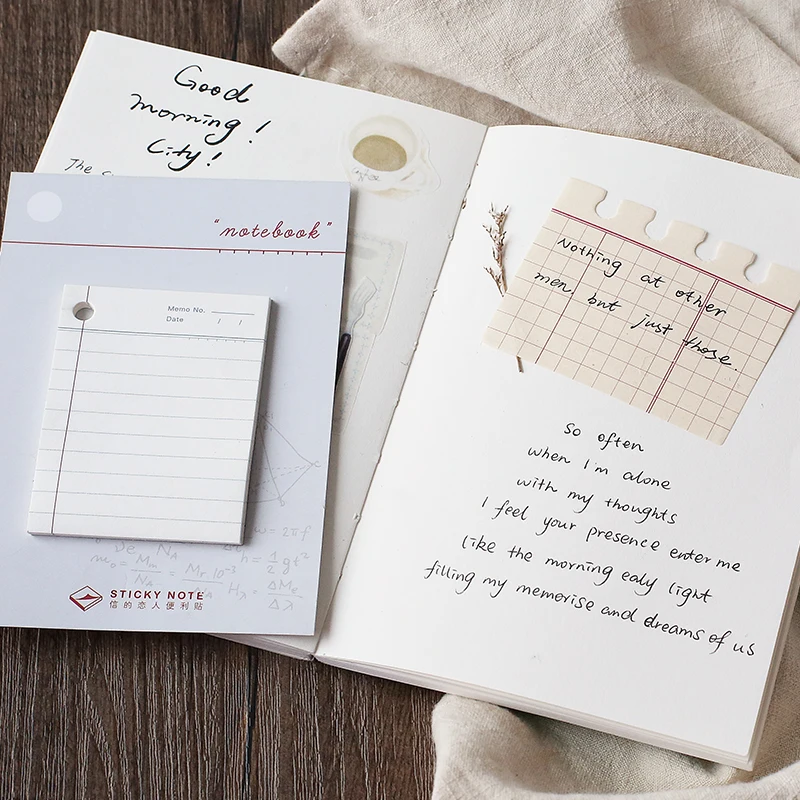 Good
morning!
City!
The
"notebook"
Memo No.
Date / /
STICKY NOTE
信的恋人便利贴
Nothing at other
men, but just those.
So often
when I'm alone
with my thoughts
I feel your presence enter me
like the morning ealy light
filling my memorise and dreams of us